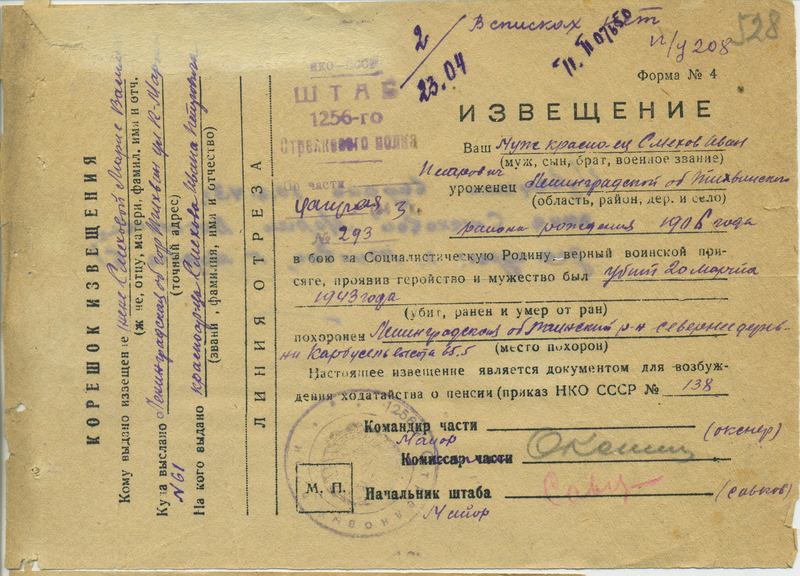 В списках нет
п/у 208
528
2
23.04
П. П 07650
Форма № 4
НКО-СССР
ШТАБ
1256-го
Стрелкового полка
По части
№ 293
ИЗВЕЩЕНИЕ
Ваш муж красно-ец Смехов Иван
(муж, сын, брат, военное звание)
Петрович
уроженец Ленинградской об Тихвинского
(область, район, дер. и село)
района рождения 1906 года
в бою за Социалистическую Родину, верный воинской при-
сяге, проявив геройство и мужество был убит 20 марта
1943 года
(убит, ранен и умер от ран)
похоронен Ленинградская об Тосненский р-н севернее дерев-
ни Карбусель высота 65.5
(место похорон)
Настоящее извещение является документом для возбуж-
дения ходатайства о пенсии (приказ НКО СССР № 138
Командир части
(окснер)
Майор
Комиссар части
М. П.
Начальник штаба
(савков)
Майор
ЛИНИЯ ОТРЕЗА
КОРЕШОК ИЗВЕЩЕНИЯ
Кому выдано извещение жене Смеховой Марие
(жене, отцу, матери, фамил. имя и отч.
Куда выслано Ленинградская об гор Тихвин ул К-Маркса
(точный адрес)
N61
На кого выдано красноарца Смехова Ивана Петровича
(звание, фамилия, имя и отчество)